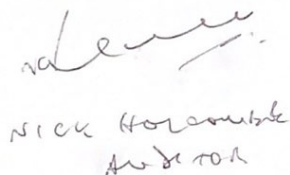 NICK HOLCOMBE
AUDITOR